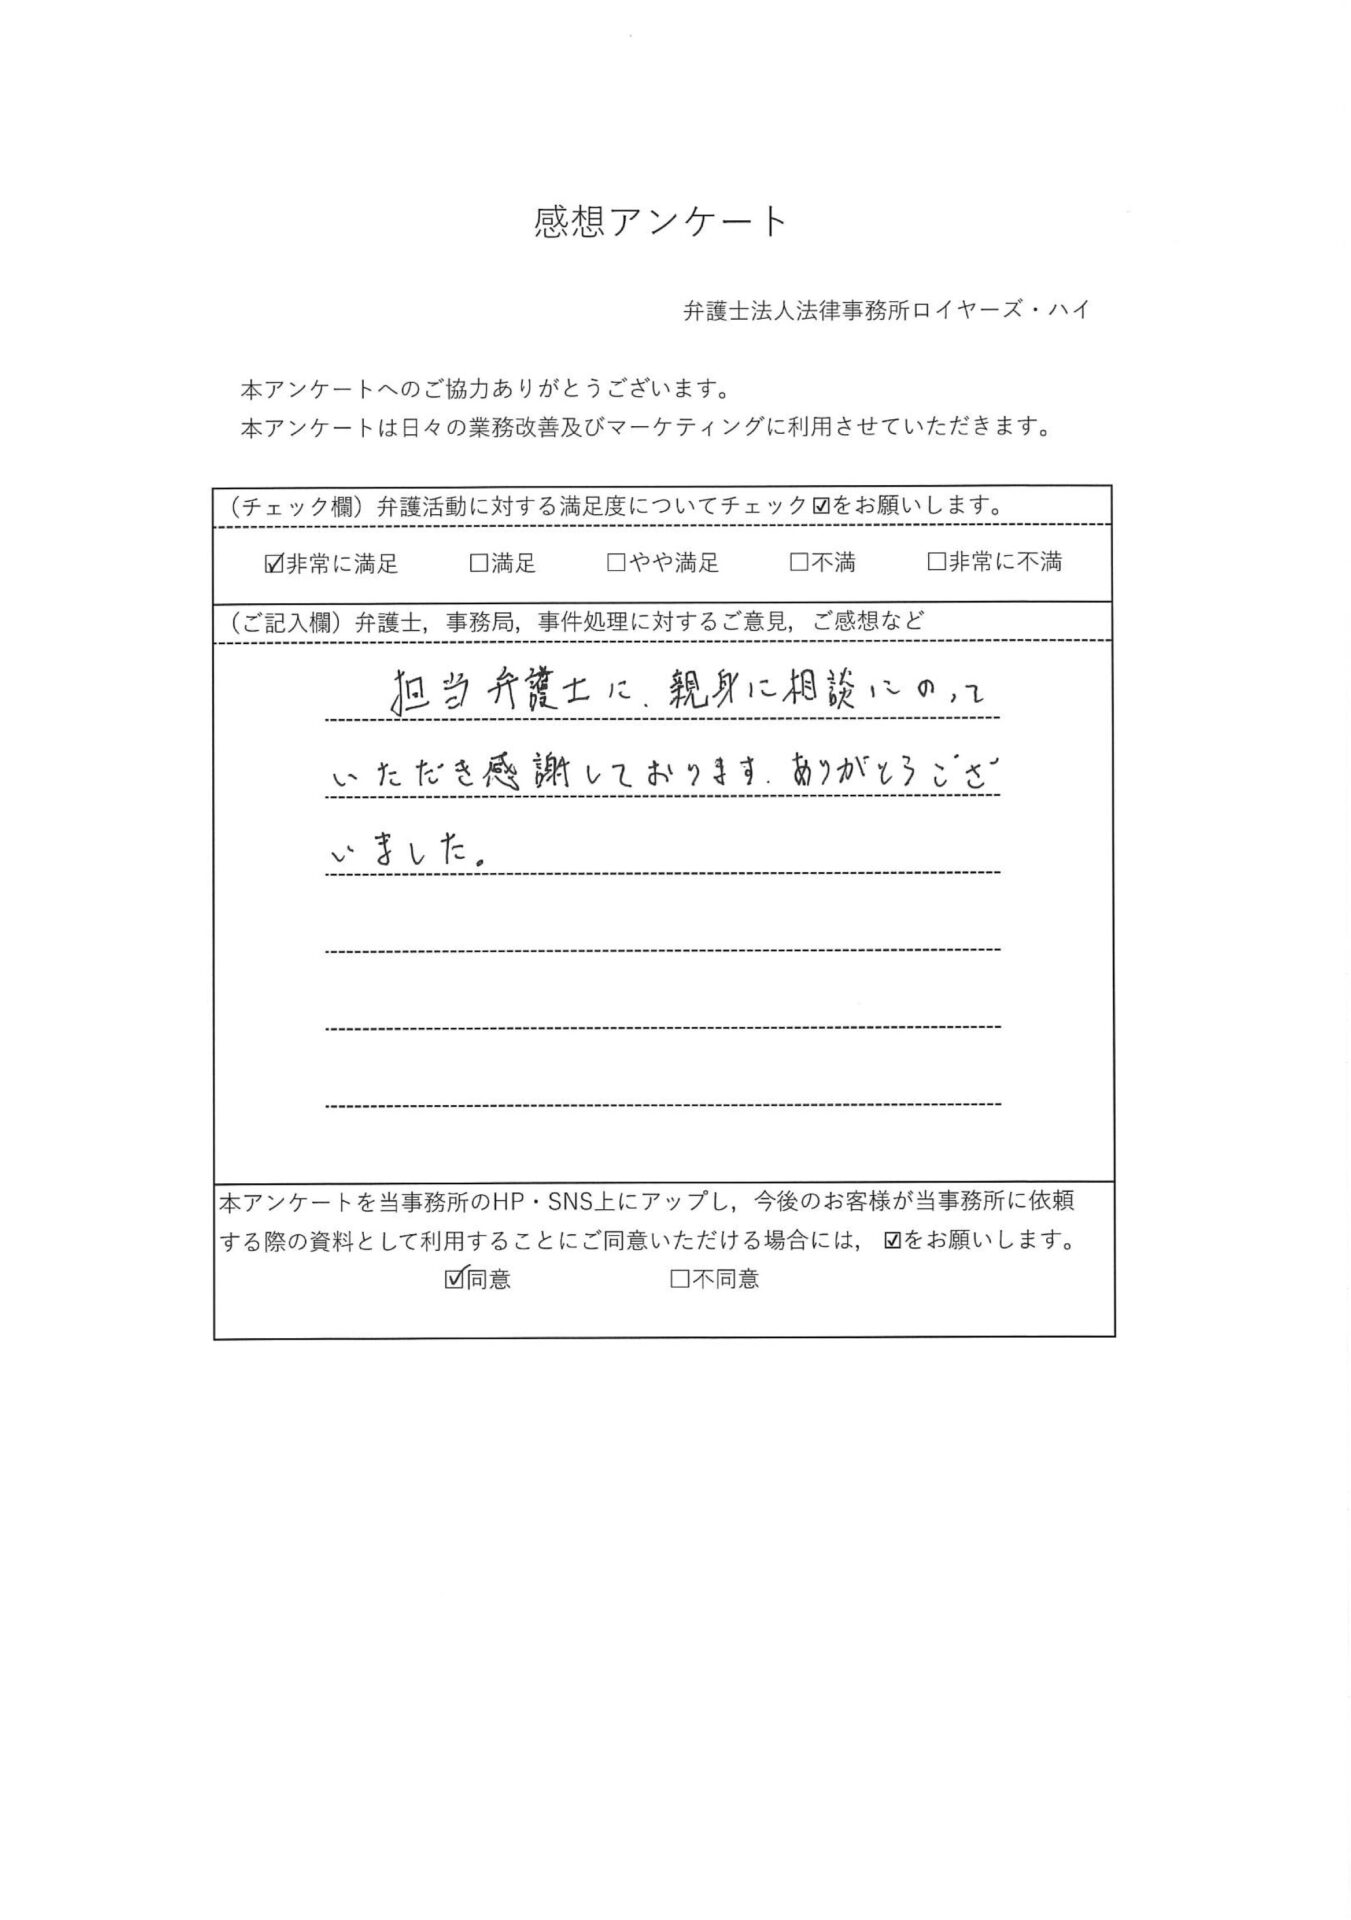 感想アンケート
弁護士法人法律事務所ロイヤーズ・ハイ
本アンケートへのご協力ありがとうございます。
本アンケートは日々の業務改善及びマーケティングに利用させていただきます。
（チェック欄）弁護活動に対する満足度についてチェック☑をお願いします。
☑非常に満足 □満足 □やや満足 □不満 □非常に不満
（ご記入欄）弁護士，事務局，事件処理に対するご意見，ご感想など
担当弁護士に、親身に相談にのって
いただき感謝しております。ありがとうござ
いました。
本アンケートを当事務所のHP・SNS上にアップし，今後のお客様が当事務所に依頼
する際の資料として利用することにご同意いただける場合には，☑をお願いします。
☑同意 □不同意